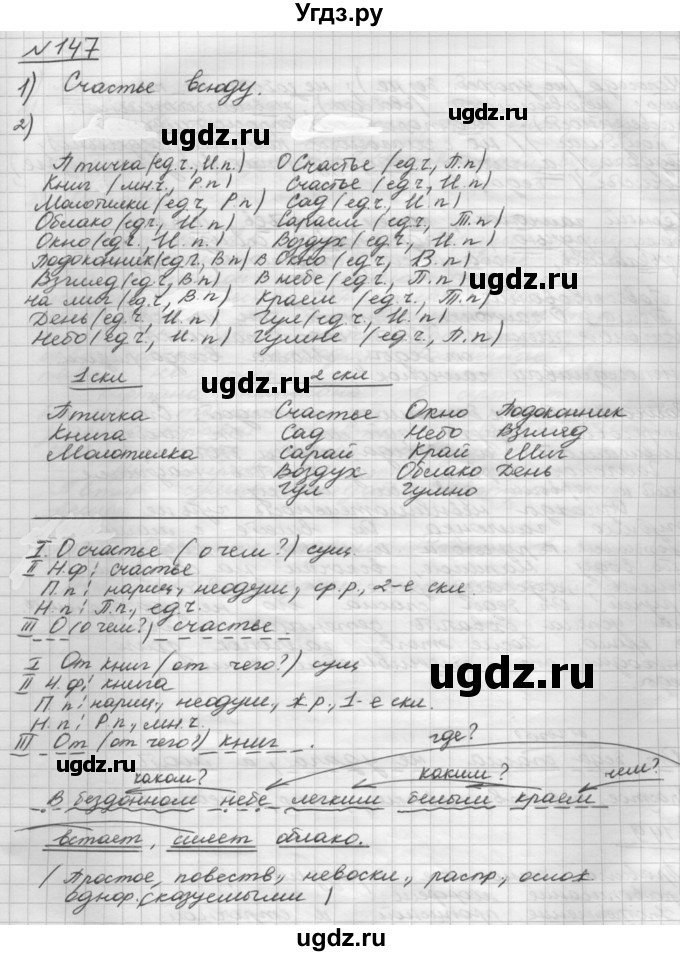 Угдз.ру
№147
1) Счастье всюду.
2)
ugdz.ru ugdz.ru
Птичка (ед.ч., И.п.) О Счастье (ед.ч., П.п)
Книг (мн.ч., Р.п) Счастье (ед.ч., И.п)
Молотилки (ед.ч., Р.п) Сад (ед.ч., И.п)
Облако (ед.ч., И.п) Сараем (ед.ч., Т.п)
Окно (ед.ч., И.п.) Воздух (ед.ч., И.п)
Подоконник (ед.ч., В.п) в Окно (ед.ч., В.п)
Взгляд (ед.ч, В.п) В небе (ед.ч., П.п)
ugdz.ru
на миг (ед.ч, В.п) Краем (ед.ч., Т.п)
День (ед.ч, И.п) Гул (ед.ч, И.п)
Небо (ед.ч, И.п) Гумне (ед.ч., П.п)
1 скл 2 скл
ugdz.ru
Птичка Счастье Окно Подоконник
Книга Сад Небо Взгляд
Молотилка Сарай Край Миг
Воздух Облако День
Гул Гумно
I. О счастье (о чем?) сущ.
II Н.ф: счастье
П.п: нариц, неодуш, ср.р, 2-е скл.
Н.п: П.п, ед.ч.
III О (о чем?) счастье
I От книг (от чего?) сущ
II Н.ф: книга
ugdz.ru
П.п: нариц, неодуш, ж.р, 1-е скл.
Н.п: Р.п, мн.ч.
III От (от чего?) книг.
где?
ugdz.ru
каком? каким? чем?
В бездонном небе легким белым краем
встает, сияет облако.
(Простое, повеств, невоскл., распр, ослож.
однор. сказуемыми)
ugdz.ru